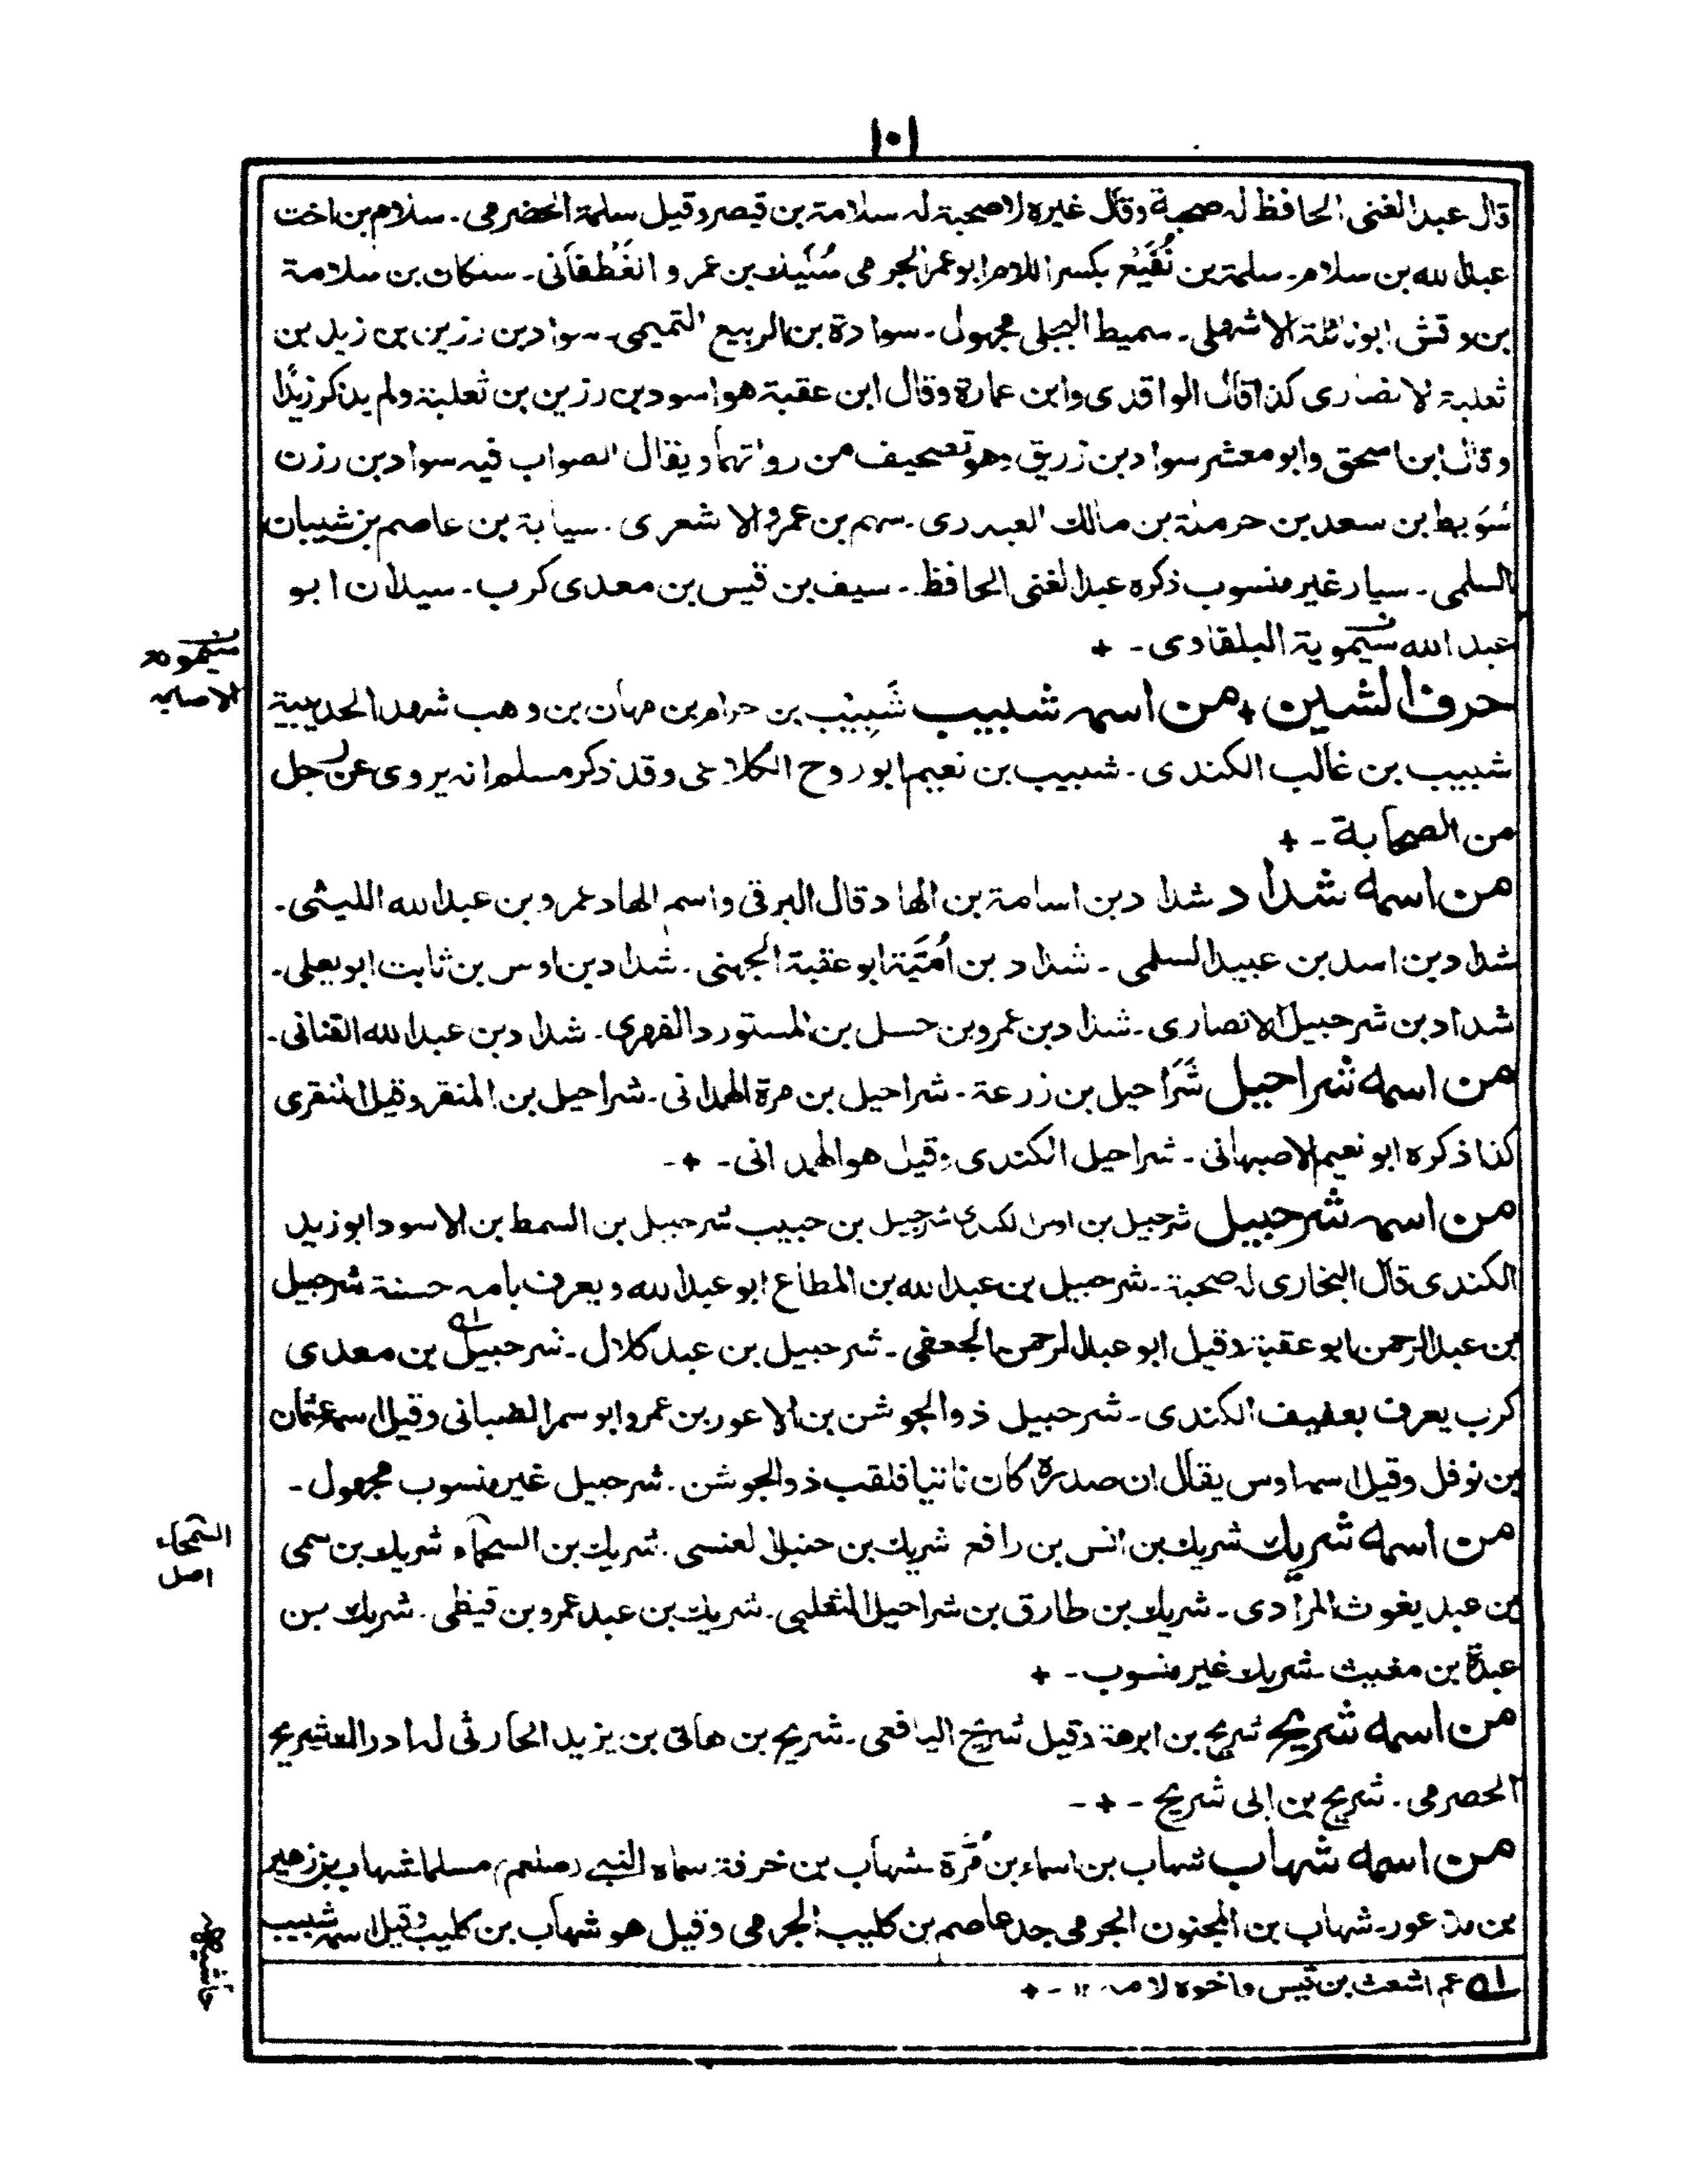 ١٠١
قال عبد الغنى الحافظ له صحبة وقال غيره لا صحبة له سلامة بن قيصر وقيل سلمة الحضرمى ـ سلام بن اخت
عبد الله بن سلام ـ سلمة بن نُفَيْع بكسر اللام ابو عمر الجرمى سُنَيد بن عمرو الغَطَفَانى ـ سلكان بن سلامة
بن وقش ابو نائلة الاشهلى ـ سميط البجلى مجهول ـ سوادة بن الربيع التميمى ـ سواد بن رزين بن زيد بن
ثعلبة الانصارى كذا قال الواقدى وابن عمارة وقال ابن عقبة هو اسود بن رزين بن ثعلبة ولم يذكر زيدًا
وقال ابن اسحق وابو معشر سواد بن زريق وهو تصحيف من رواتهما ويقال الصواب فيه سواد بن رزن
سُوَيبط بن سعد بن حرملة بن مالك العبدرى ـ سهم بن عمرو الاشعرى ـ سيابة بن عاصم بن شيبان
السلمى ـ سيار غير منسوب ذكره عبد الغنى الحافظ ـ سيف بن قيس بن معدى كرب ـ سيلان ابو
عبد الله سيموية البلقادى ـ +
حرف الشين + من اسمه شبيب شَبِيْب بن حرام بن مهان بن وهب شهد الحديبية
شبيب بن غالب الكندى ـ شبيب بن نعيم ابو روح الكلاعى وقد ذكر مسلم انه يروى عن رجل
من الصحابة ـ +
من اسمه شداد شداد بن اسامة بن الهاد قال البرقى واسم الهاد عمرو بن عبد الله الليثى ـ
شداد بن اسد بن عبيد السلمى ـ شداد بن اُمَيَّة ابو عقبة الجهنى ـ شداد بن اوس بن ثابت ابو يعلى ـ
شداد بن شرحبيل الانصارى ـ شداد بن عمرو بن حسل بن المستورد الفهرى ـ شداد بن عبد الله القنانى ـ
من اسمه شراحيل شَرَاحيل بن زرعة ـ شراحيل بن مرة الهمدانى ـ شراحيل بن المنقر وقيل المنقرى
كذا ذكره ابو نعيم الاصبهانى ـ شراحيل الكندى وقيل هو الهمدانى ـ + ـ
من اسمه شرحبيل شرحبيل بن اوس الكندى شرحبيل بن حبيب شرحبيل بن السمط بن الاسود ابو زيد
الكندى قال البخارى له صحبة ـ شرحبيل بن عبد الله بن المطاع ابو عبد الله ويعرف بامه حسنة شرحبيل
بن عبد الرحمن ابو عقبة وقيل ابو عبد الرحمن الجعفى ـ شرحبيل بن عبد كلال ـ شرحبيل ١؎ بن معدى
كرب يعرف بعفيف الكندى ـ شرحبيل ذو الجوشن بن الاعور بن عمرو ابو سمر الضبابى وقيل اسمه عثمان
بن نوفل وقيل اسمه اوس يقال ان صدره كان ناتيا فلقب ذو الجوشن ـ شرحبيل غير منسوب مجهول ـ
من اسمه شريك شريك بن انس بن رافع شريك بن حنبل العنسى ـ شريك بن السحماء شريك بن سمى
بن عبد يغوث المرادى ـ شريك بن طارق بن شراحيل الثعلبى ـ شريك بن عبد عمرو بن قيظى ـ شريك بن
عبدة بن مغيث ـ شريك غير منسوب ـ +
من اسمه شريح شريح بن ابرهة وقيل شريح اليافعى ـ شريح بن هانى بن يزيد الحارثى له ادراك شريح
الحضرمى ـ شريح بن ابى شريح ـ + ـ
من اسمه شهاب شهاب بن اسماء بن مُرَّة ـ شهاب بن خرفة سماه النبى (صلعم) مسلما شهاب بن زهير
بن مذعور ـ شهاب بن المجنون الجرمى جد عاصم بن كليب الجرمى وقيل هو شهاب بن كليب وقيل اسمه شبيب
١؎ عم اشعث بن قيس واخوه لامه ١٢ ـ +
الاصابه
السحماء
اصل
حاشيه